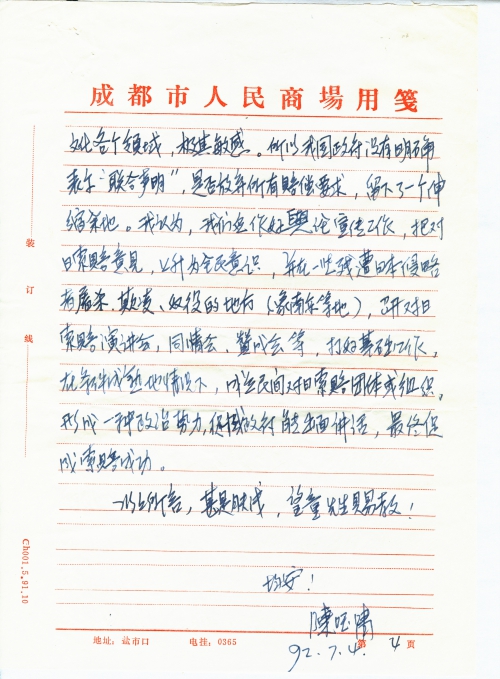 成都市人民商場用箋
文化各个领域，极其敏感。所以我国政府没有明确
表示"联合声明"，是否放弃所有赔偿要求，留下了一个伸
缩余地。我认为，我们应作好舆论宣传工作，把对
日索赔意见，以升为全民意识，并在一些残遭日本侵略
者屠杀、欺凌、奴役的地方（象南京等地），开对日
索赔演讲会、同情会、赞成会等，打好基础工作，
在条件成熟地情况下，成立民间对日索赔团体或组织。
形成一种政治势力，促我政府能出面讲话，最终促
成索赔成功。
以上所言，甚是肤浅，望童先生赐教！
均安！
陳
92.7.4.
第4页
地址：盐市口 电挂：0365
装订线
Ch001.5.91.10